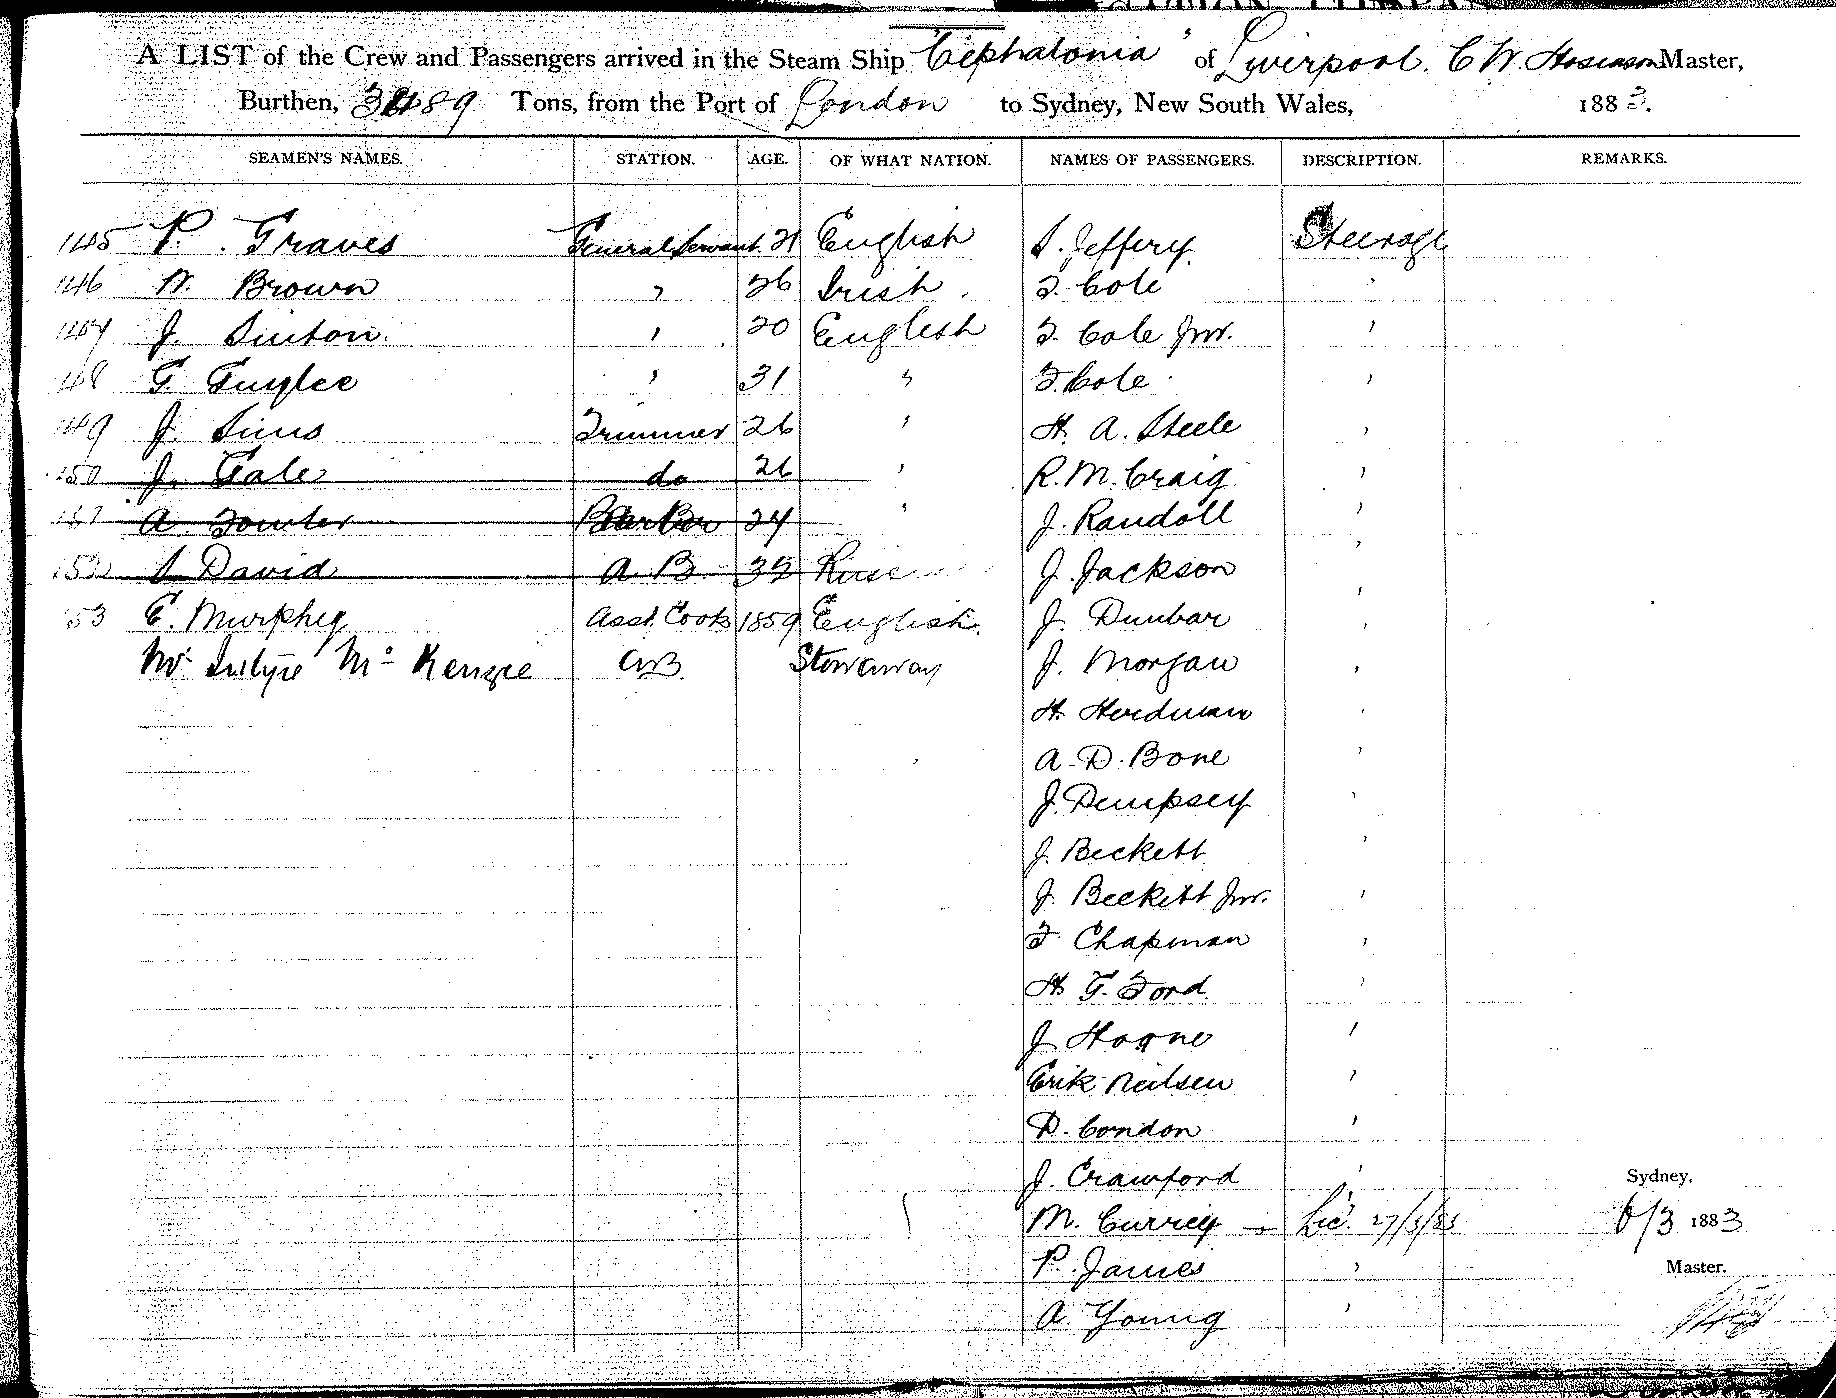 A LIST of the Crew and Passengers arrived in the Steam Ship "Cephalonia" of Liverpool. C W. Hoseason Master,
Burthen, 3489 Tons, from the Port of London to Sydney, New South Wales, 1883.
SEAMEN'S NAMES. STATION. AGE. OF WHAT NATION. NAMES OF PASSENGERS. DESCRIPTION. REMARKS.
145 P. Graves General Servant. 21 English S. Jeffery. Steerage
146 W. Brown " 26 Irish. T. Cole "
147 J. Sinton. " 20 English T. Cole Jnr. "
148 G. Guylee " 31 " T. Cole "
149 J. Sims Trimmer 26 " H. A. Steele "
150 J. Gale do 26 " R. M. Craig "
151 A. Fowler Barber 24 " J. Randall "
152 S David A B. 32 Russ J. Jackson "
153 E. Murphy Asst. Cook 1859 English. J. Dunbar "
Mc Intyre Mc Kenzie AB Stowaway J. Morgan "
H. Herdman "
A. D. Bone "
J. Dempsey "
J. Beckett "
J. Beckett Jnr. "
T. Chapman "
H. G. Ford "
J. "
Erik Neilsen "
D. Condon "
J. Crawford "
Sydney,
M. Currey 6/3 1883
P. James "
Master.
A. Young "